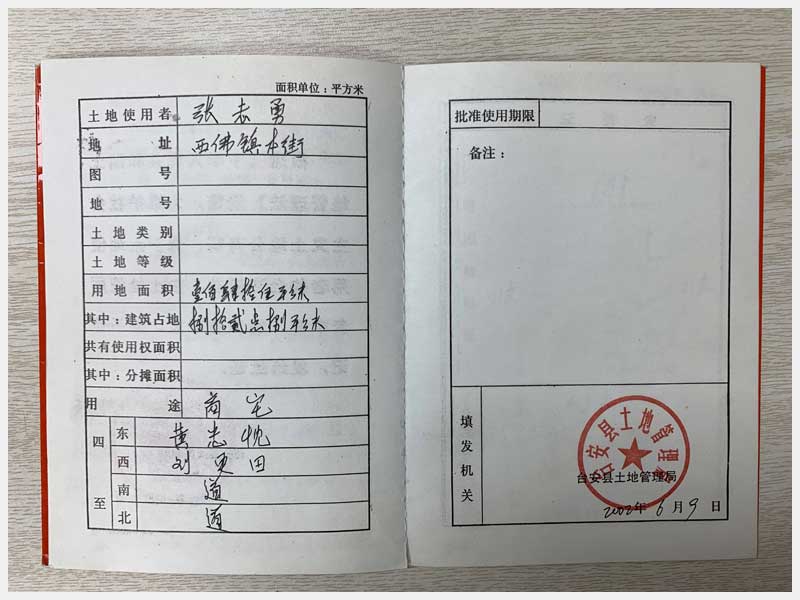 面积单位：平方米
土地使用者 张志勇
地址 西佛镇本街
图号
地号
土地类别
土地等级
用地面积 壹佰肆拾伍平方米
其中：建筑占地 捌拾贰点捌平方米
共有使用权面积
其中：分摊面积
用途 商宅
四至
东 黄志忱
西 刘更田
南 道
北 道
批准使用期限
备注：
填发机关
台安县土地管理局
台安县土地管理局
2002年6月9日